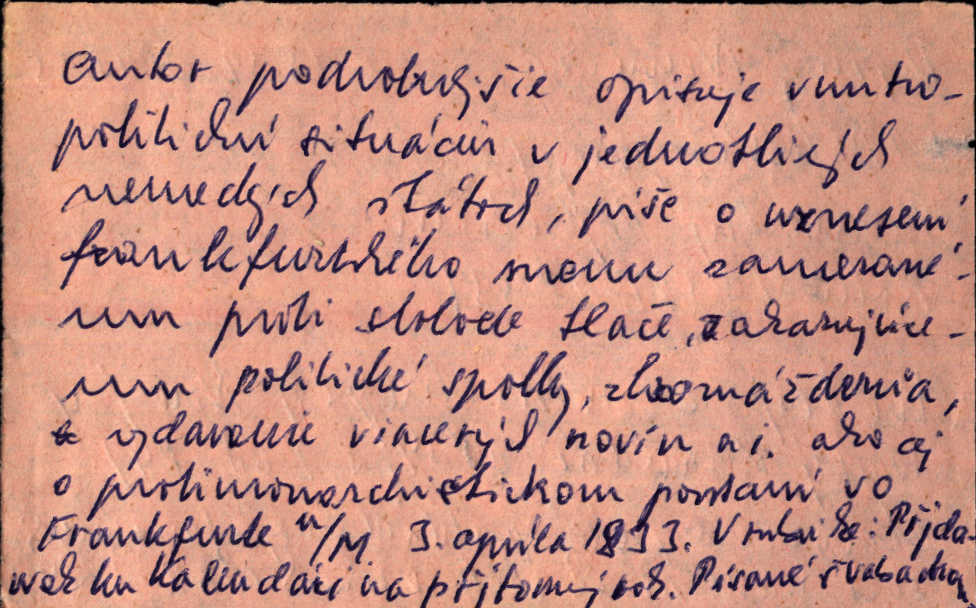 autor podrobnejšie opisuje vnutro-
politickú situáciu v jednotlivých
nemeckých štátoch, píše o uznesení
frankfurtského snemu zamerané-
mu proti slobode tlače, zakazujúce-
mu politické spolky, zhromaždenia,
vydavanie viacerých novín a i. ako aj
o protimonarchistickom povstaní vo
Frankfurte n/M 3. apríla 1833. V rubrike: Přjda-
wek ku Kalendáři na přítomný rok. Písané švabachom